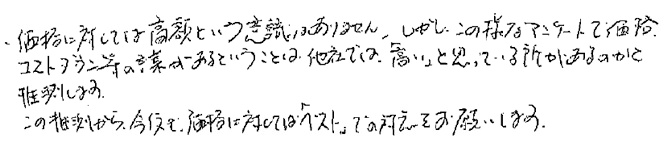 ・価格に対しては高額という意識はありません。しかし、この様なアンケートで価格、
コストダウン等の言葉があるということは、他社では「高い」と思っている所があるのかと
推測します。
この推測から、今後も、価格に対しては「ベスト」での対応をお願いします。